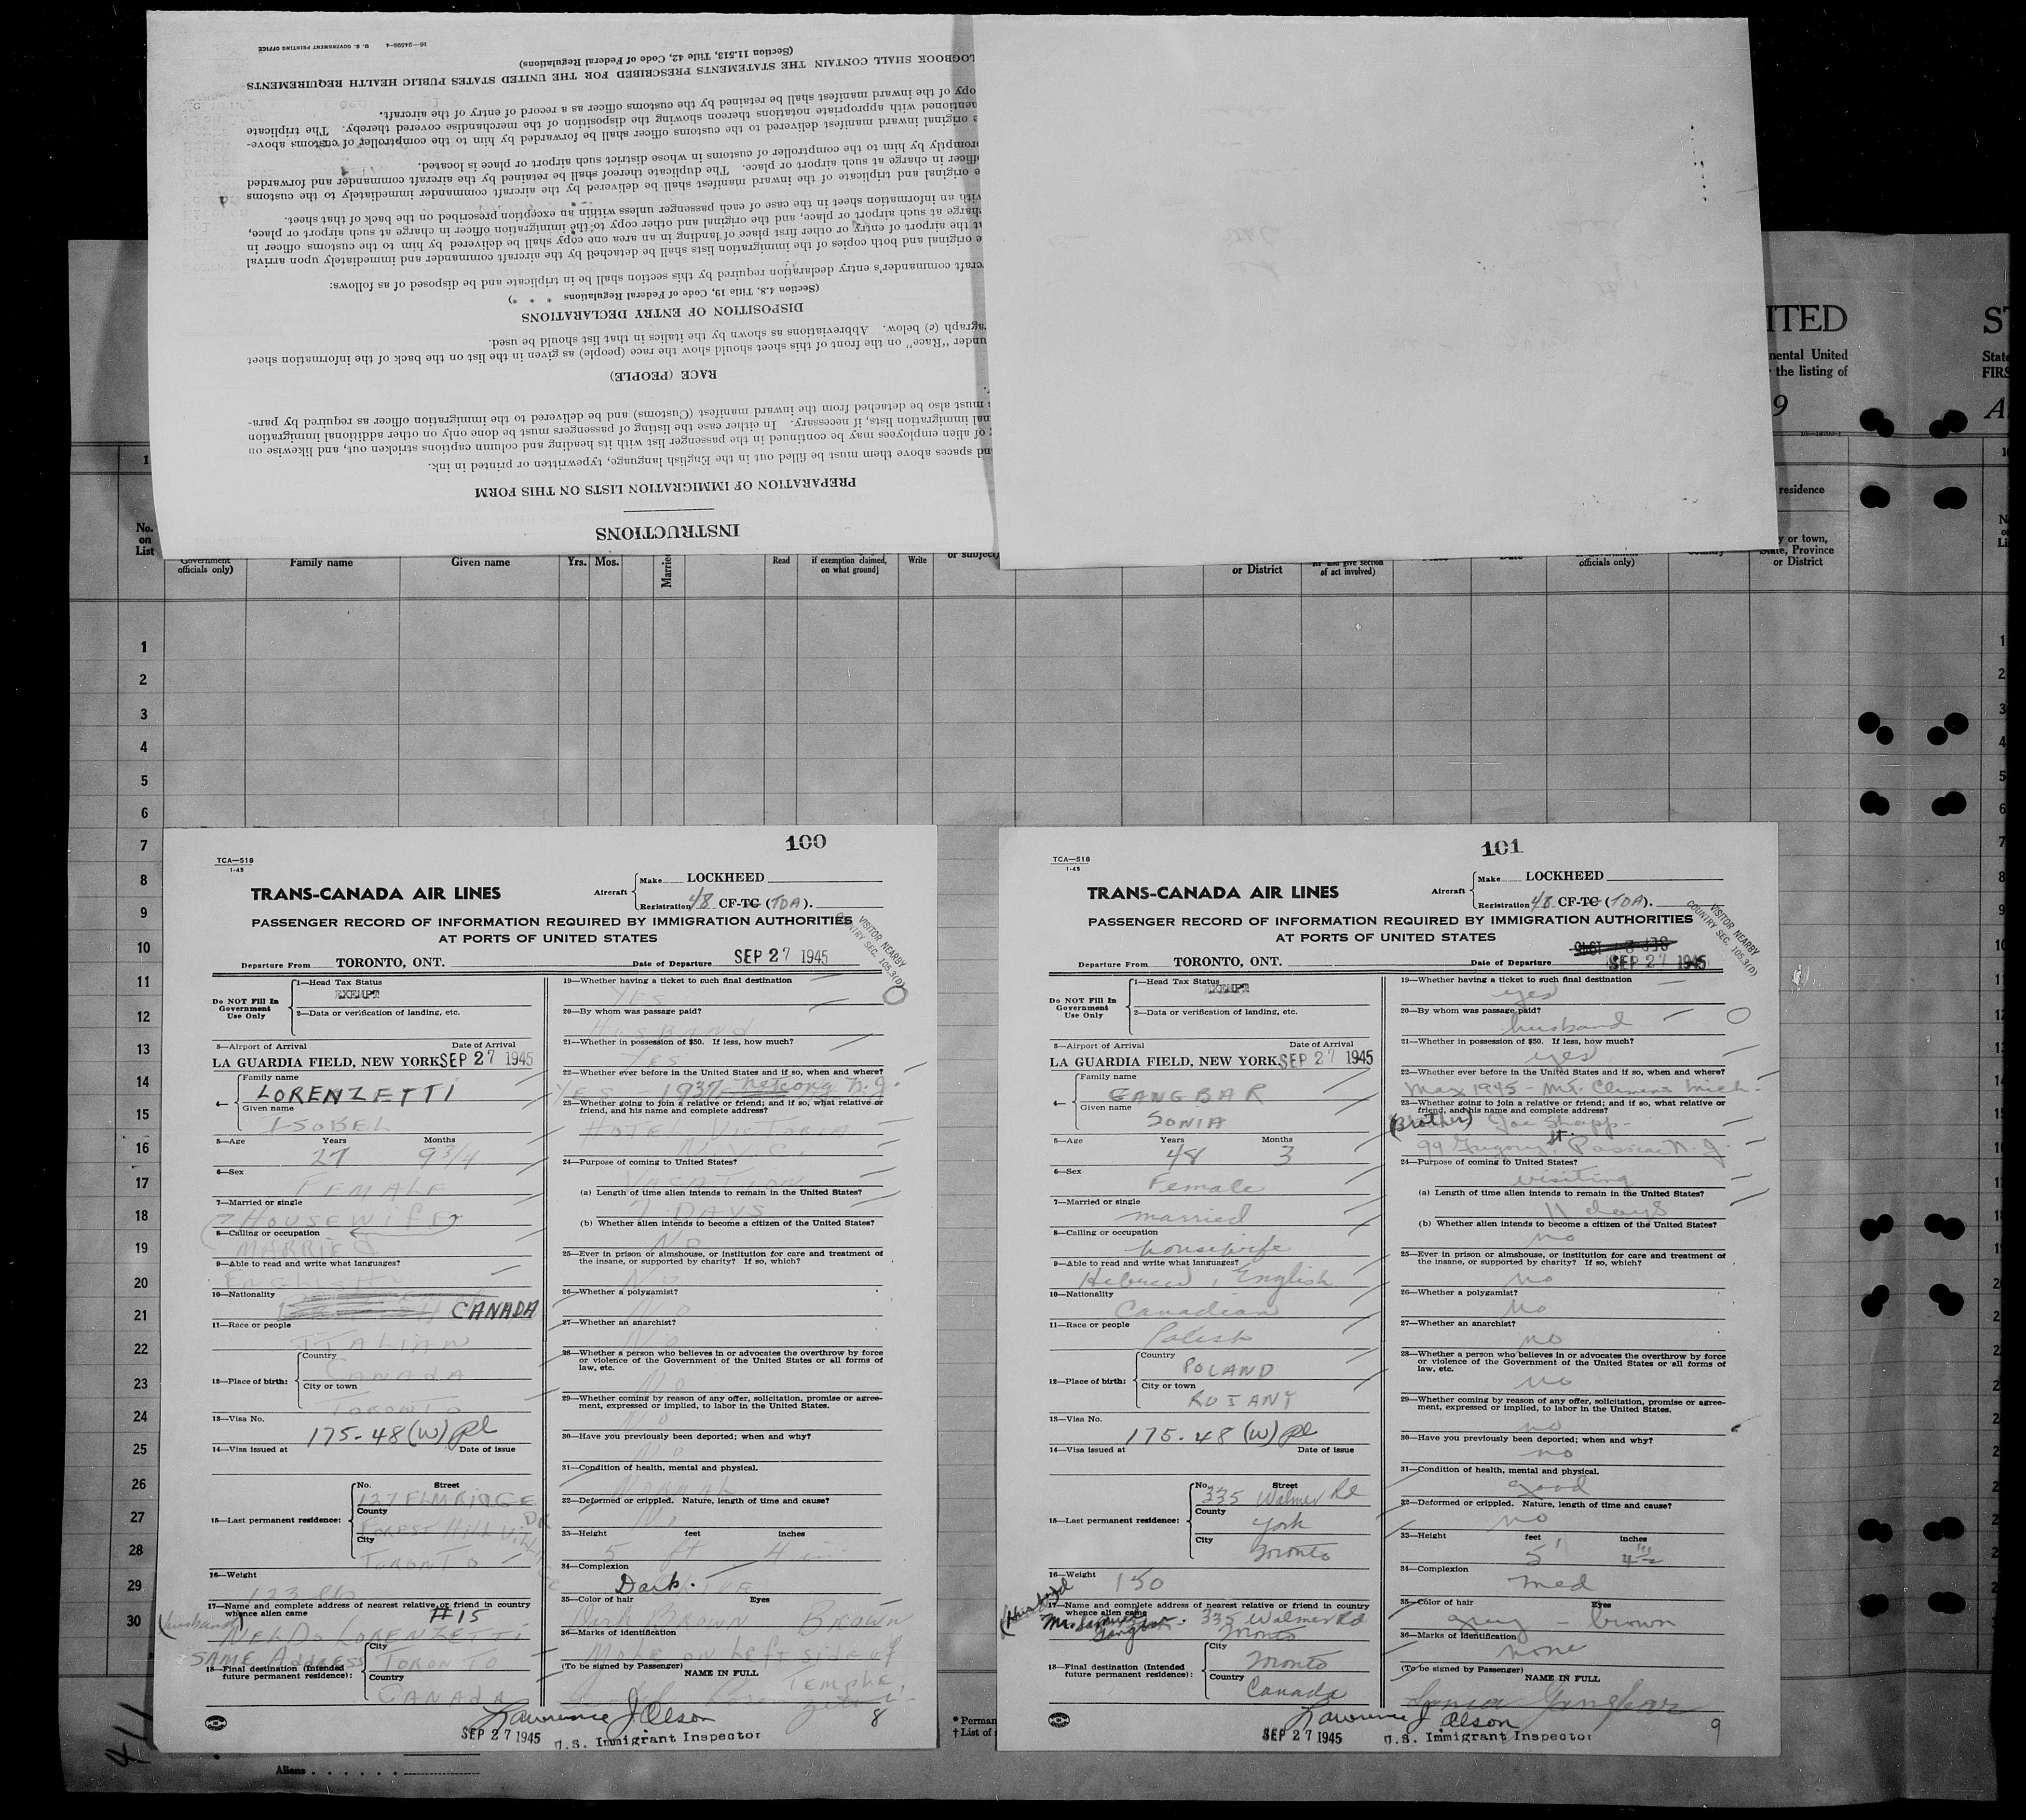 16—24596-4 U. S. GOVERNMENT PRINTING OFFICE
(Section 11.513, Title 42, Code of Federal Regulations)
LOGBOOK SHALL CONTAIN THE STATEMENTS PRESCRIBED FOR THE UNITED STATES PUBLIC HEALTH REQUIREMENTS
opy of the inward manifest shall be retained by the customs officer as a record of entry of the aircraft.
mentioned with appropriate notations thereon showing the disposition of the merchandise covered thereby. The triplicate
e original inward manifest delivered to the customs officer shall be forwarded by him to the comptroller of customs above-
promptly by him to the comptroller of customs in whose district such airport or place is located.
officer in charge at such airport or place. The duplicate thereof shall be retained by the aircraft commander and forwarded
e original and triplicate of the inward manifest shall be delivered by the aircraft commander immediately to the customs
with an information sheet in the case of each passenger unless within an exception prescribed on the back of that sheet.
charge at such airport or place, and the original and other copy to the immigration officer in charge at such airport or place,
at the airport of entry or other first place of landing in an area one copy shall be delivered by him to the customs officer in
e original and both copies of the immigration lists shall be detached by the aircraft commander and immediately upon arrival
craft commander's entry declaration required by this section shall be in triplicate and be disposed of as follows:
(Section 4.8, Title 19, Code of Federal Regulations * * *)
DISPOSITION OF ENTRY DECLARATIONS
agraph (c) below. Abbreviations as shown by the italics in that list should be used.
under "Race" on the front of this sheet should show the race (people) as given in the list on the back of the information sheet
RACE (PEOPLE)
must also be detached from the inward manifest (Customs) and be delivered to the immigration officer as required by para-
nal immigration lists, if necessary. In either case the listing of passengers must be done only on other additional immigration
of alien employees may be continued in the passenger list with its heading and column captions stricken out, and likewise on
nd spaces above them must be filled out in the English language, typewritten or printed in ink.
PREPARATION OF IMMIGRATION LISTS ON THIS FORM
INSTRUCTIONS
ITED
nental United
the listing of
9
ST
State
FIRS
A
residence
y or town,
State, Province
or District
No.
on
List
Government
officials only)
Family name
Given name
Yrs. Mos.
Married
Read
if exemption claimed,
on what ground]
Write
or subject
or District
of act involved)
officials only)
1
2
3
4
5
6
7
8
9
10
11
12
13
14
15
16
17
18
19
20
21
22
23
24
25
26
27
28
29
30
100
TCA—518
1-45
TRANS-CANADA AIR LINES
Aircraft
Make LOCKHEED
Registration 48 CF-TC (TDA).
PASSENGER RECORD OF INFORMATION REQUIRED BY IMMIGRATION AUTHORITIES
AT PORTS OF UNITED STATES
VISITOR NEARBY
COUNTRY SEC. 105.3(D)
Departure From TORONTO, ONT. Date of Departure SEP 27 1945
Do NOT Fill In
Government
Use Only
1—Head Tax Status
EXEMPT
2—Data or verification of landing, etc.
3—Airport of Arrival Date of Arrival
LA GUARDIA FIELD, NEW YORK SEP 27 1945
4— Family name
LORENZETTI
Given name
ISOBEL
5—Age Years Months
27 9 3/4
6—Sex
FEMALE
7—Married or single
HOUSEWIFE
8—Calling or occupation
MARRIED
9—Able to read and write what languages?
ENGLISH
10—Nationality
CANADA
11—Race or people
ITALIAN
12—Place of birth: Country
CANADA
City or town
TORONTO
13—Visa No.
175-48(W) pl
14—Visa issued at Date of issue
15—Last permanent residence: No. Street
137 ELMRIDGE DR
County
FOREST Hill Village
City
TORONTO
16—Weight
123 lbs
17—Name and complete address of nearest relative or friend in country
whence alien came #15
(husband) NELDO LORENZETTI
SAME Address
18—Final destination (Intended
future permanent residence): City
TORONTO
Country
CANADA
19—Whether having a ticket to such final destination
YES
20—By whom was passage paid?
HUSBAND
21—Whether in possession of $50. If less, how much?
YES
22—Whether ever before in the United States and if so, when and where?
YES 1937 Netcong N.J.
23—Whether going to join a relative or friend; and if so, what relative or
friend, and his name and complete address?
HOTEL VICTORIA
N.Y.C.
24—Purpose of coming to United States?
VACATION
(a) Length of time alien intends to remain in the United States?
7 DAYS
(b) Whether alien intends to become a citizen of the United States?
No
25—Ever in prison or almshouse, or institution for care and treatment of
the insane, or supported by charity? If so, which?
No
26—Whether a polygamist?
No
27—Whether an anarchist?
No
28—Whether a person who believes in or advocates the overthrow by force
or violence of the Government of the United States or all forms of
law, etc.
No
29—Whether coming by reason of any offer, solicitation, promise or agree-
ment, expressed or implied, to labor in the United States.
No
30—Have you previously been deported; when and why?
No
31—Condition of health, mental and physical.
NORMAL
32—Deformed or crippled. Nature, length of time and cause?
No
33—Height feet inches
5 ft 4 in
34—Complexion
Dark.
35—Color of hair Eyes
Dark BROWN BROWN
36—Marks of identification
Mole on Left side of
Temple
(To be signed by Passenger) NAME IN FULL
Lawrence J Olson 8
SEP 27 1945 U.S. Immigrant Inspector
101
TCA—518
1-45
TRANS-CANADA AIR LINES
Aircraft
Make LOCKHEED
Registration 48 CF-TC (TDA).
PASSENGER RECORD OF INFORMATION REQUIRED BY IMMIGRATION AUTHORITIES
AT PORTS OF UNITED STATES
VISITOR NEARBY
COUNTRY SEC. 105.3(D)
Departure From TORONTO, ONT. Date of Departure SEP 27 1945
Do NOT Fill In
Government
Use Only
1—Head Tax Status
EXEMPT
2—Data or verification of landing, etc.
3—Airport of Arrival Date of Arrival
LA GUARDIA FIELD, NEW YORK SEP 27 1945
4— Family name
GANGBAR
Given name
SONIA
5—Age Years Months
48 3
6—Sex
Female
7—Married or single
married
8—Calling or occupation
housewife
9—Able to read and write what languages?
Hebrew, English
10—Nationality
Canadian
11—Race or people
Polish
12—Place of birth: Country
POLAND
City or town
ROZANY
13—Visa No.
175-48 (W) pl
14—Visa issued at Date of issue
15—Last permanent residence: No. Street
335 Walmer Rd
County
York
City
Toronto
16—Weight
150
17—Name and complete address of nearest relative or friend in country
whence alien came
(Husband) Mr. Gangbar - 335 Walmer Rd
Toronto
18—Final destination (Intended
future permanent residence): City
Toronto
Country
Canada
19—Whether having a ticket to such final destination
yes
20—By whom was passage paid?
husband
21—Whether in possession of $50. If less, how much?
yes
22—Whether ever before in the United States and if so, when and where?
May 1945 - Mt. Clemens Mich.
23—Whether going to join a relative or friend; and if so, what relative or
friend, and his name and complete address?
(Brother) Joe Shapp -
99 Gregory St. Passaic N.J.
24—Purpose of coming to United States?
visiting
(a) Length of time alien intends to remain in the United States?
11 days
(b) Whether alien intends to become a citizen of the United States?
no
25—Ever in prison or almshouse, or institution for care and treatment of
the insane, or supported by charity? If so, which?
no
26—Whether a polygamist?
no
27—Whether an anarchist?
no
28—Whether a person who believes in or advocates the overthrow by force
or violence of the Government of the United States or all forms of
law, etc.
no
29—Whether coming by reason of any offer, solicitation, promise or agree-
ment, expressed or implied, to labor in the United States.
no
30—Have you previously been deported; when and why?
no
31—Condition of health, mental and physical.
good
32—Deformed or crippled. Nature, length of time and cause?
no
33—Height feet inches
5'
34—Complexion
med
35—Color of hair Eyes
grey brown
36—Marks of identification
none
(To be signed by Passenger) NAME IN FULL
Sonia Gangbar
Lawrence J Olson 9
SEP 27 1945 U.S. Immigrant Inspector
* Perman
† List of
411
Aliens